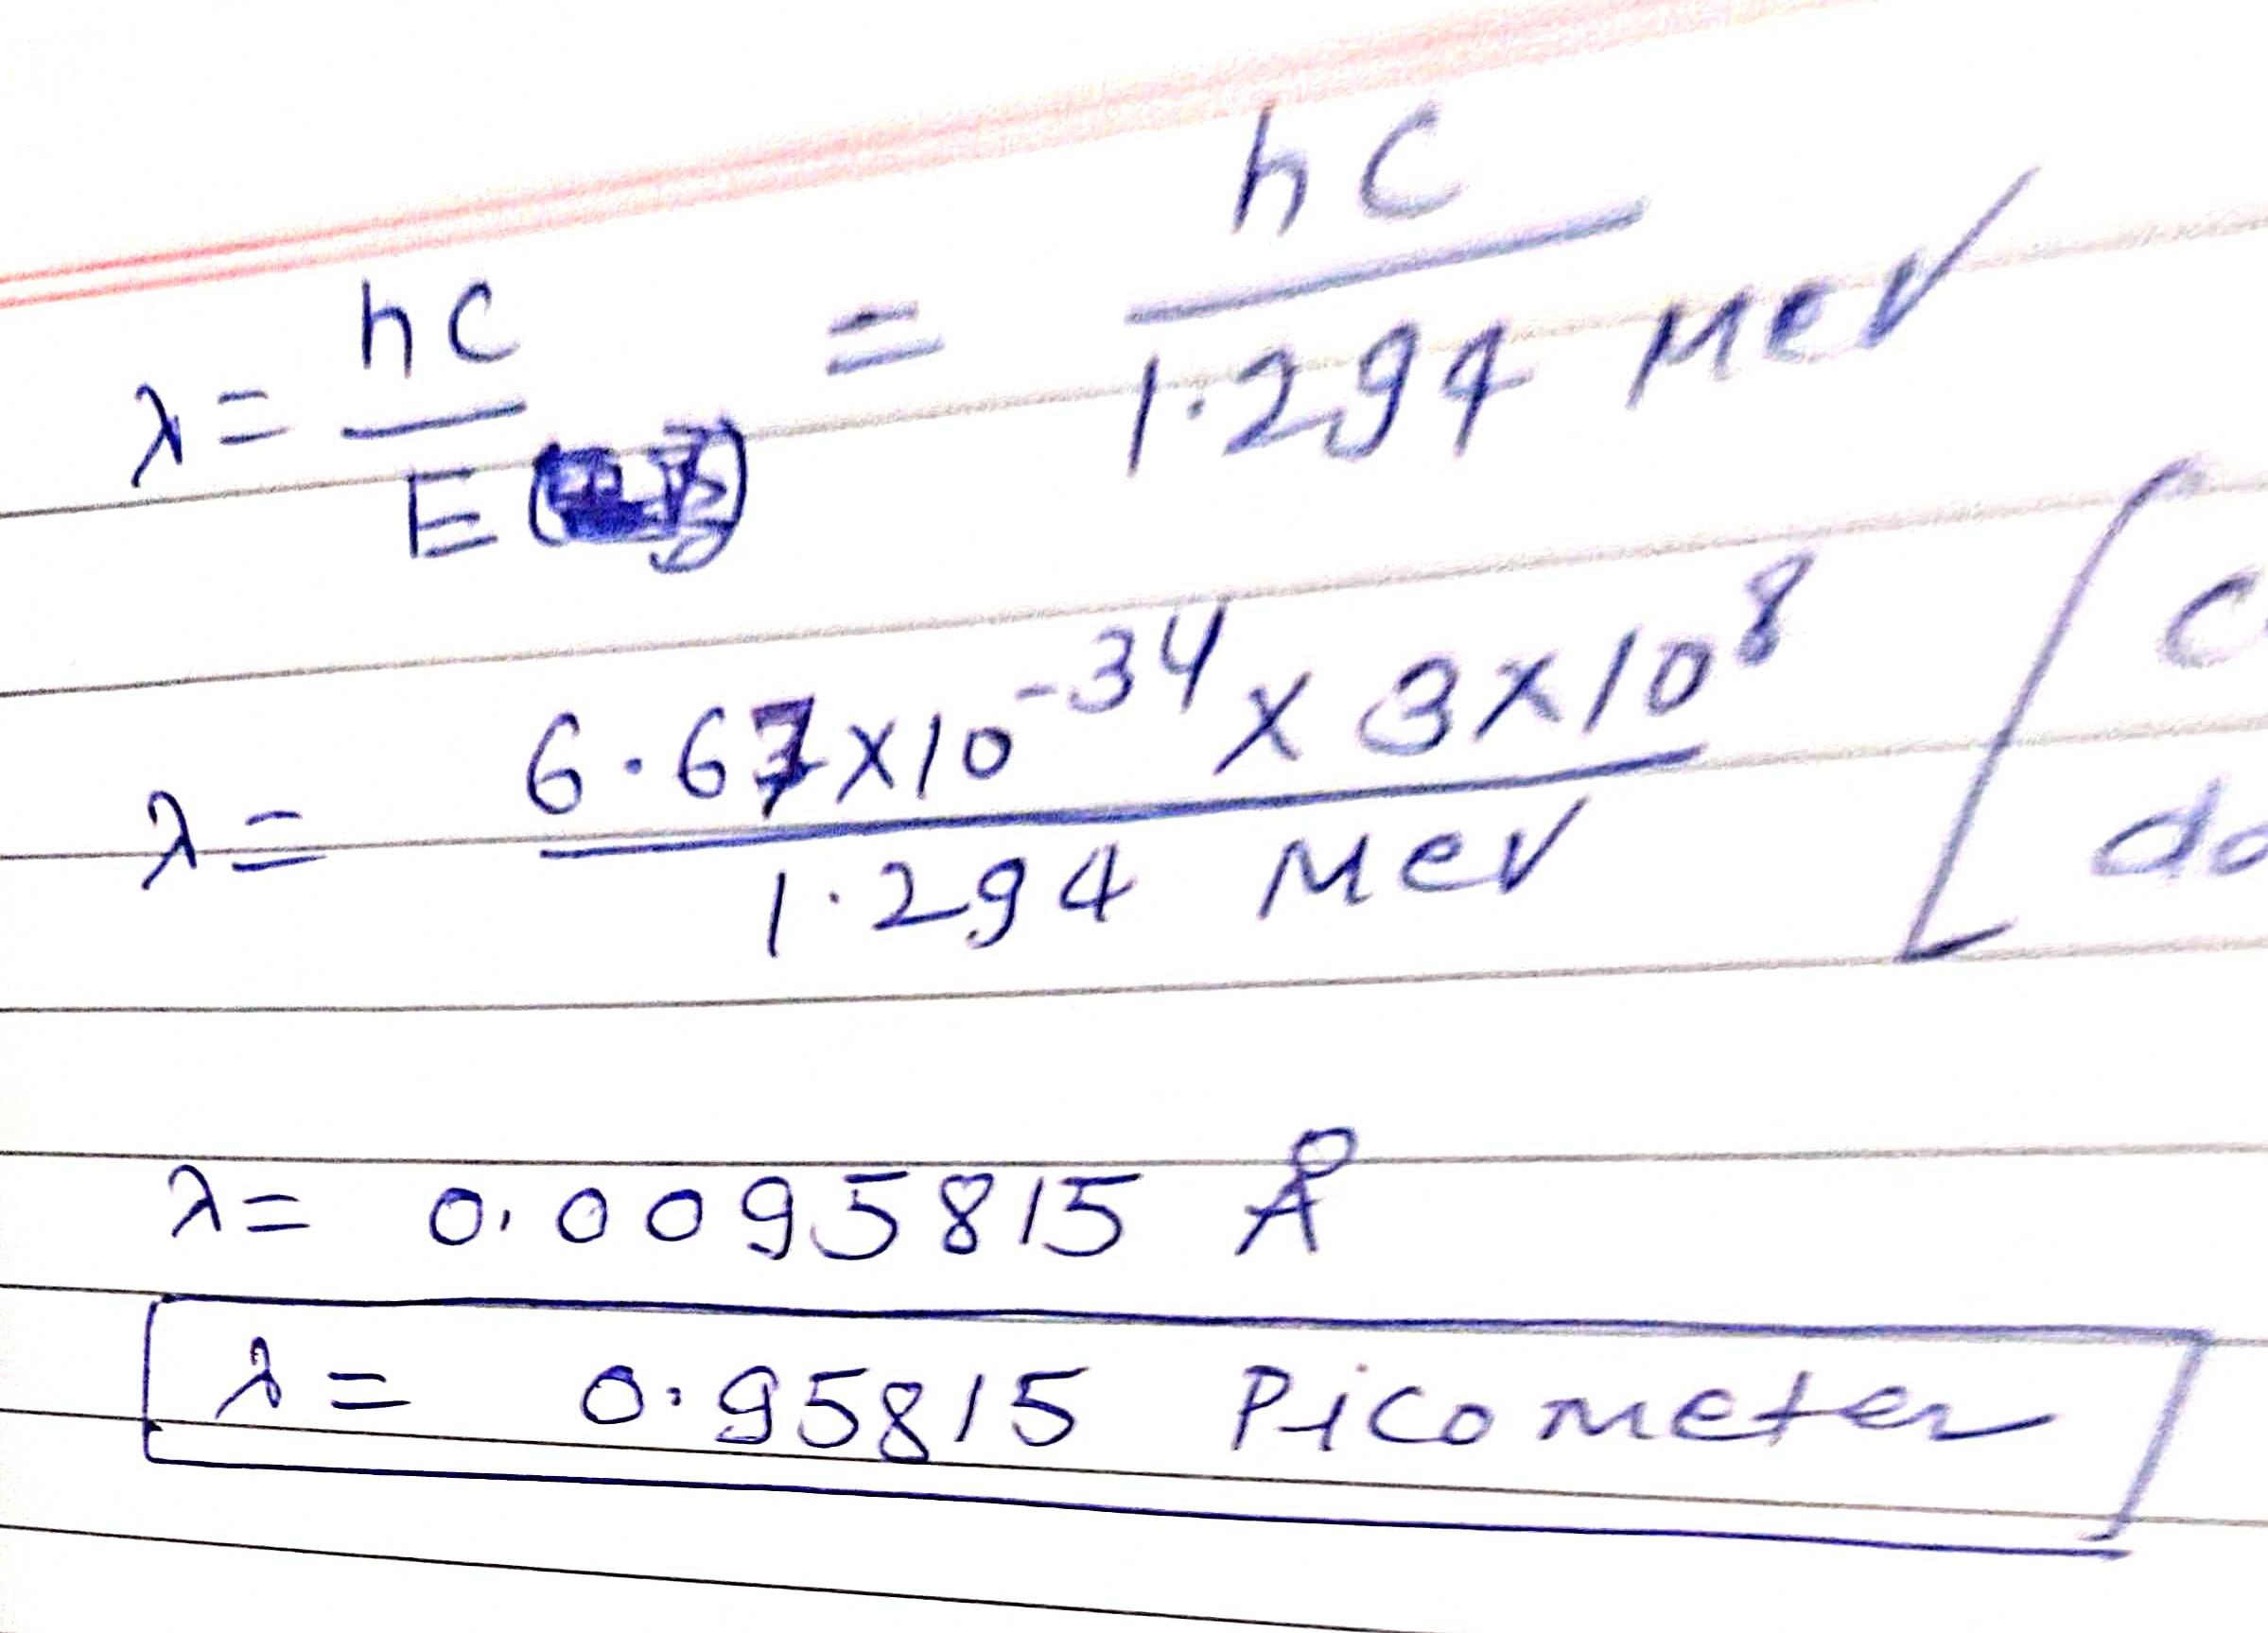 λ = hc / E = hc / 1.294 MeV
λ = 6.67 × 10^-34 × 3 × 10^8 / 1.294 MeV [
λ = 0.0095815 Å
λ = 0.95815 Picometer